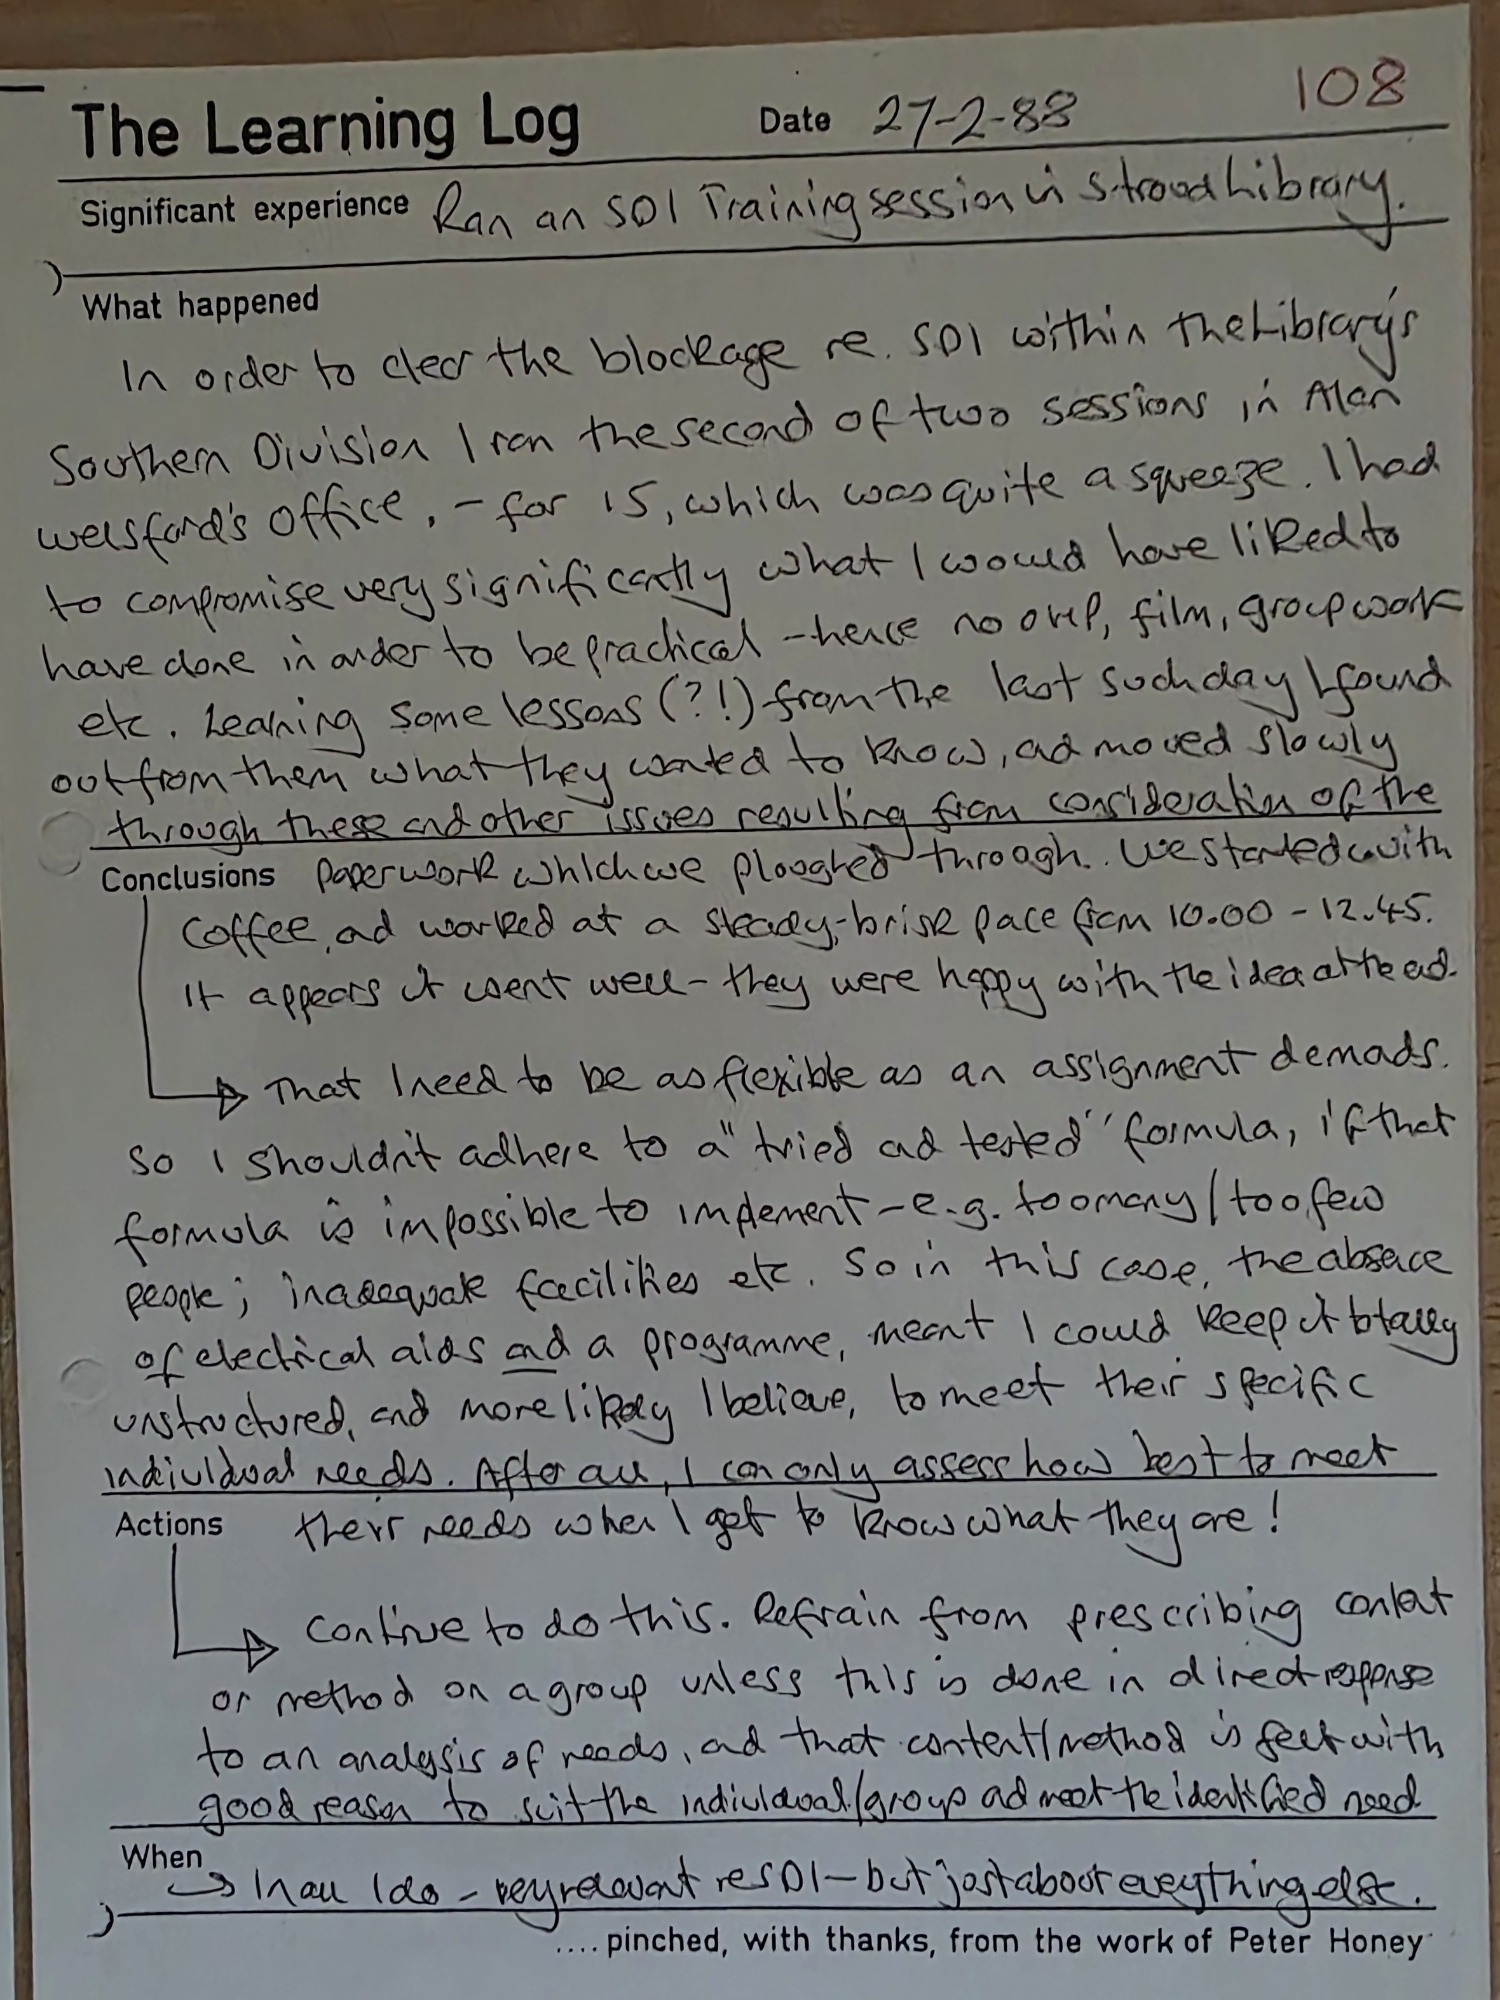 108
The Learning Log Date 27-2-88
Significant experience Ran an SDI Training session in Stroud Library.
What happened
In order to clear the blockage re. SDI within the Library's
Southern Division I ran the second of two sessions in Alan
Welsford's Office, - for 15, which was quite a squeeze. I had
to compromise very significantly what I would have liked to
have done in order to be practical - hence no OHP, film, groupwork
etc. Learning some lessons (?!) from the last such day I found
out from them what they wanted to know, and moved slowly
through these and other issues resulting from consideration of the
Conclusions paperwork which we ploughed through. We started with
coffee, and worked at a steady-brisk pace from 10.00 - 12.45.
It appears it went well - they were happy with the idea at the end.
That I need to be as flexible as an assignment demands.
So I shouldn't adhere to a "tried and tested" formula, if that
formula is impossible to implement - e.g. too many / too few
people; inadequate facilities etc. So in this case, the absence
of electrical aids and a programme, meant I could keep it totally
unstructured, and more likely I believe, to meet their specific
individual needs. After all, I can only assess how best to meet
Actions their needs when I get to know what they are!
Continue to do this. Refrain from prescribing content
or method on a group unless this is done in direct response
to an analysis of needs, and that content/method is felt with
good reason to suit the individual/group and meet the identified need
When In all I do - very relevant re SDI - but just about everything else.
.... pinched, with thanks, from the work of Peter Honey